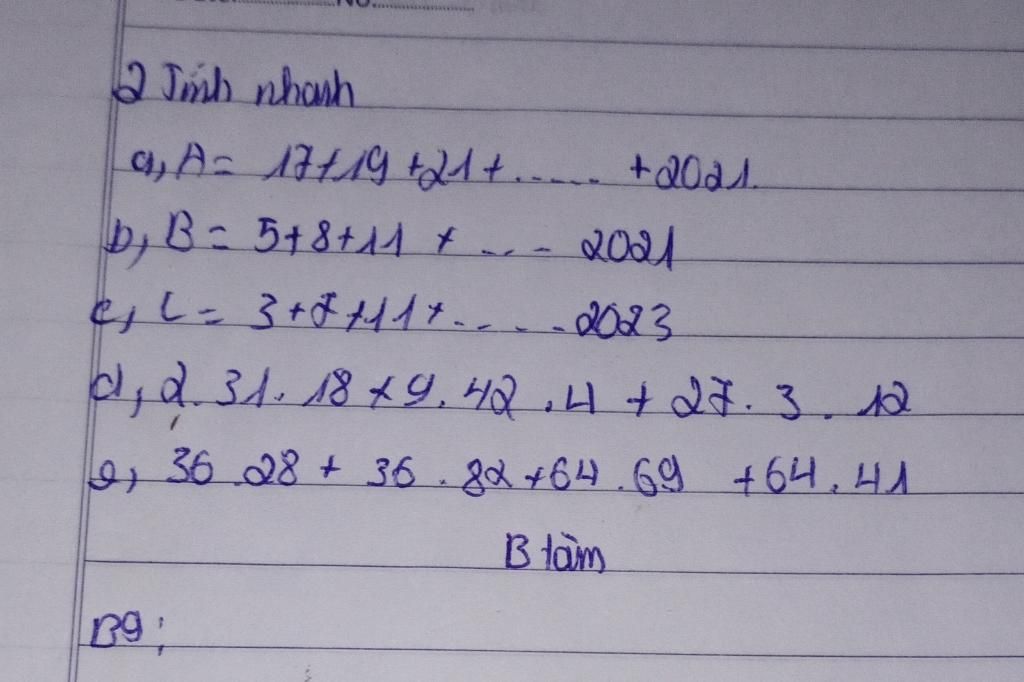 No.
2 Tính nhanh
a, A = 17+19+21+...... +2021.
b, B = 5+8+11 + ... - 2021
c, C = 3+7+11+.....2023
d, 2.31.18+9.42.4+27.3.12
e, 36.28+36.82+64.69+64.41
B làm
B9: